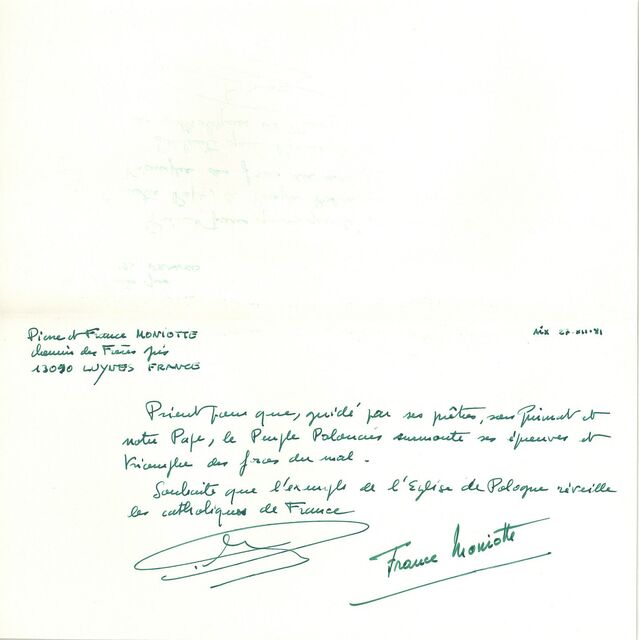 Pierre et France MONIOTTE
chemin des Frères gris
13090 LUYNES FRANCE
Aix 27-XII-81
Prient pour que, guidé par ses prêtres, son Primat et
notre Pape, le Peuple Polonais surmonte ses épreuves et
triomphe des forces du mal.
Souhaite que l'exemple de l'Eglise de Pologne réveille
les catholiques de France
France Moniotte